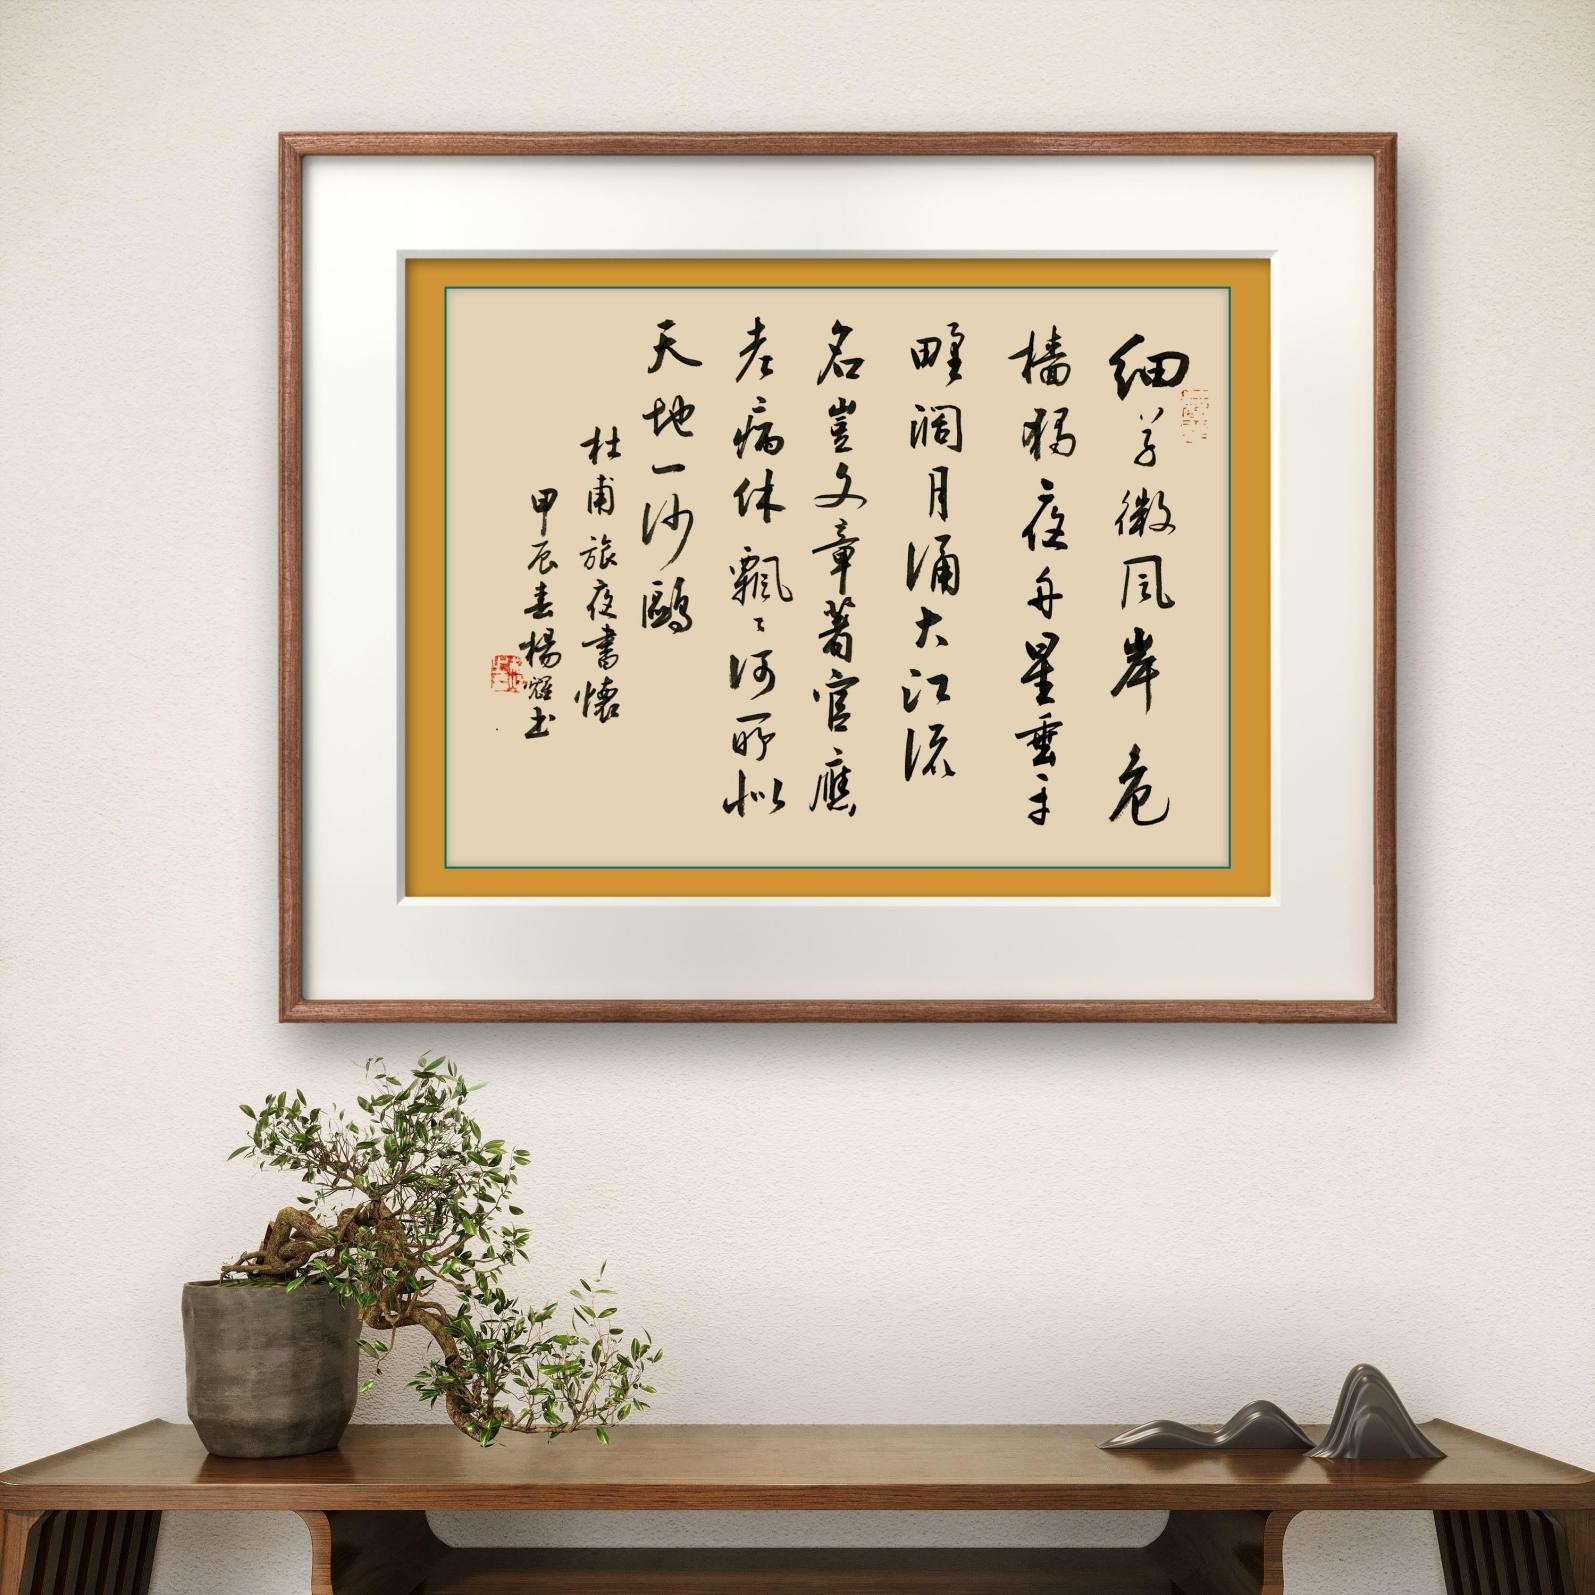 細草微風岸危
檣獨夜舟星垂平
野闊月涌大江流
名豈文章著官應
老病休飄々何所似
天地一沙鷗
杜甫旅夜書懷
甲辰春楊耀書